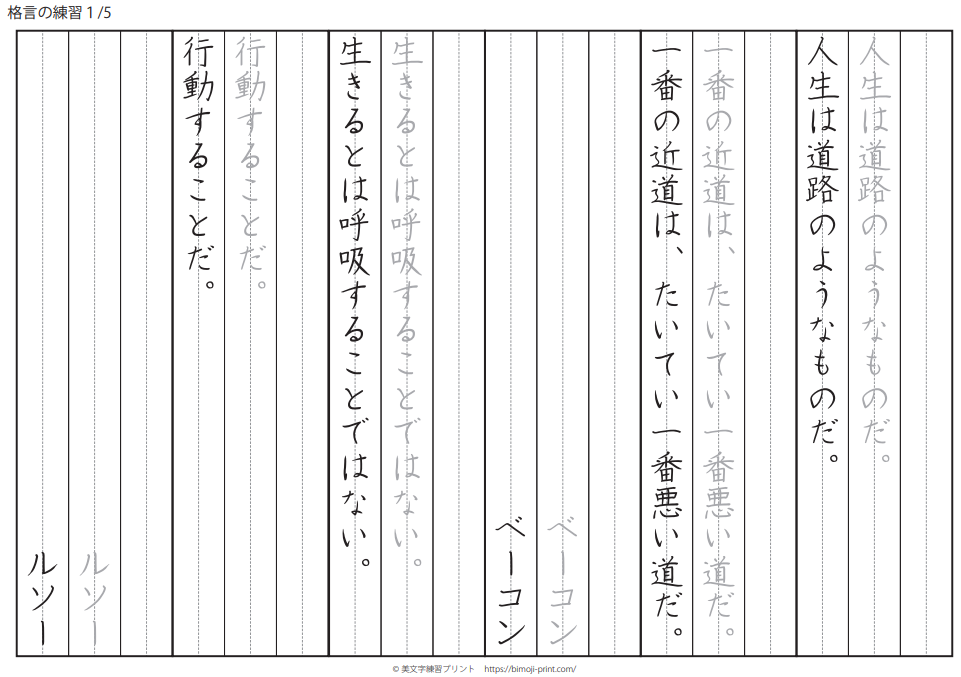 格言の練習 1 /5
人生は道路のようなものだ。
人生は道路のようなものだ。
一番の近道は、たいてい一番悪い道だ。
一番の近道は、たいてい一番悪い道だ。
ベーコン
ベーコン
生きるとは呼吸することではない。
生きるとは呼吸することではない。
行動することだ。
行動することだ。
ルソー
ルソー
© 美文字練習プリント https://bimoji-print.com/